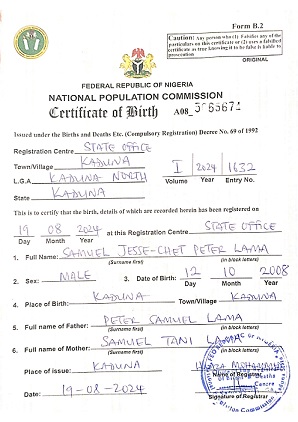 Form B.2
Caution: Any person who (1) Falsifies any of the
particulars on this certificate or (2) uses a falsified
certificate as true knowing it to be false is liable to
prosecution
ORIGINAL
FEDERAL REPUBLIC OF NIGERIA
NATIONAL POPULATION COMMISSION
Certificate of Birth A08
Issued under the Births and Deaths Etc. (Compulsory Registration) Decree No. 69 of 1992
Registration Centre STATE OFFICE
Town/Village KADUNA I 2024 1632
L.G.A KADUNA NORTH Volume Year Entry No.
State KADUNA
This is to certify that the birth, details of which are recorded herein has been registered on
19 08 2024 at this Registration Centre STATE OFFICE
Day Month Year
1. Full Name: SAMUEL JESSE-CHET PETER LAMA
(Surname first) (in block letters)
2. Sex: MALE 3. Date of Birth: 12 10 2008
Day Month Year
4. Place of Birth: KADUNA Town/Village KADUNA
5. Full name of Father: PETER SAMUEL LAMA
(Surname first) (in block letters)
6. Full name of Mother: SAMUEL TANI
(Surname first) (in block letters)
Place of issue: KADUNA
Name of Registrar
Date: 19-08-2024
Signature of Registrar